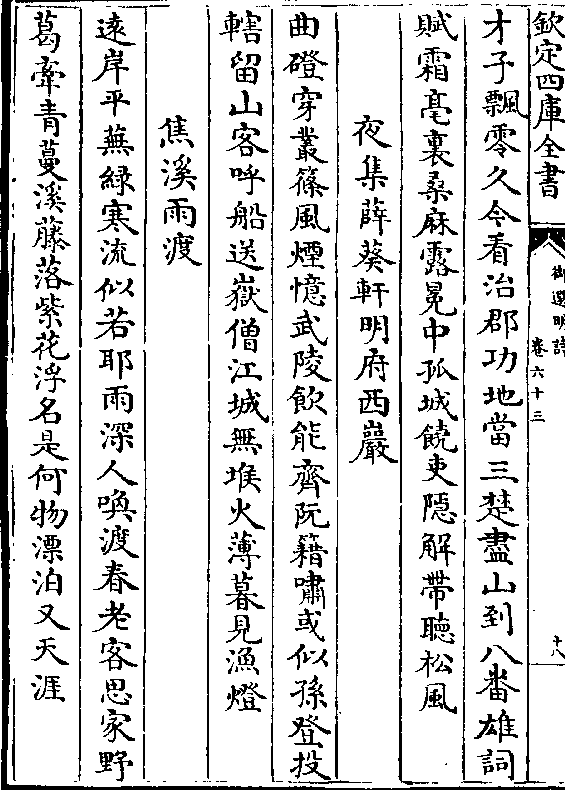 欽定四庫全書
御選明詩
卷六十三
十八
才子飄零久今看治郡功地當三楚盡山到八番雄詞
賦霜毫裏桑麻露冕中孤城饒吏隱解帶聽松風
夜集薛葵軒明府西巖
曲磴穿叢篠風煙憶武陵飲能齊阮籍嘯或似孫登投
轄留山客呼船送嶽僧江城無堠火薄暮見漁燈
焦溪雨渡
遠岸平蕪綠寒流似若耶雨深人喚渡春老客思家野
葛牽青蔓溪藤落紫花浮名是何物漂泊又天涯